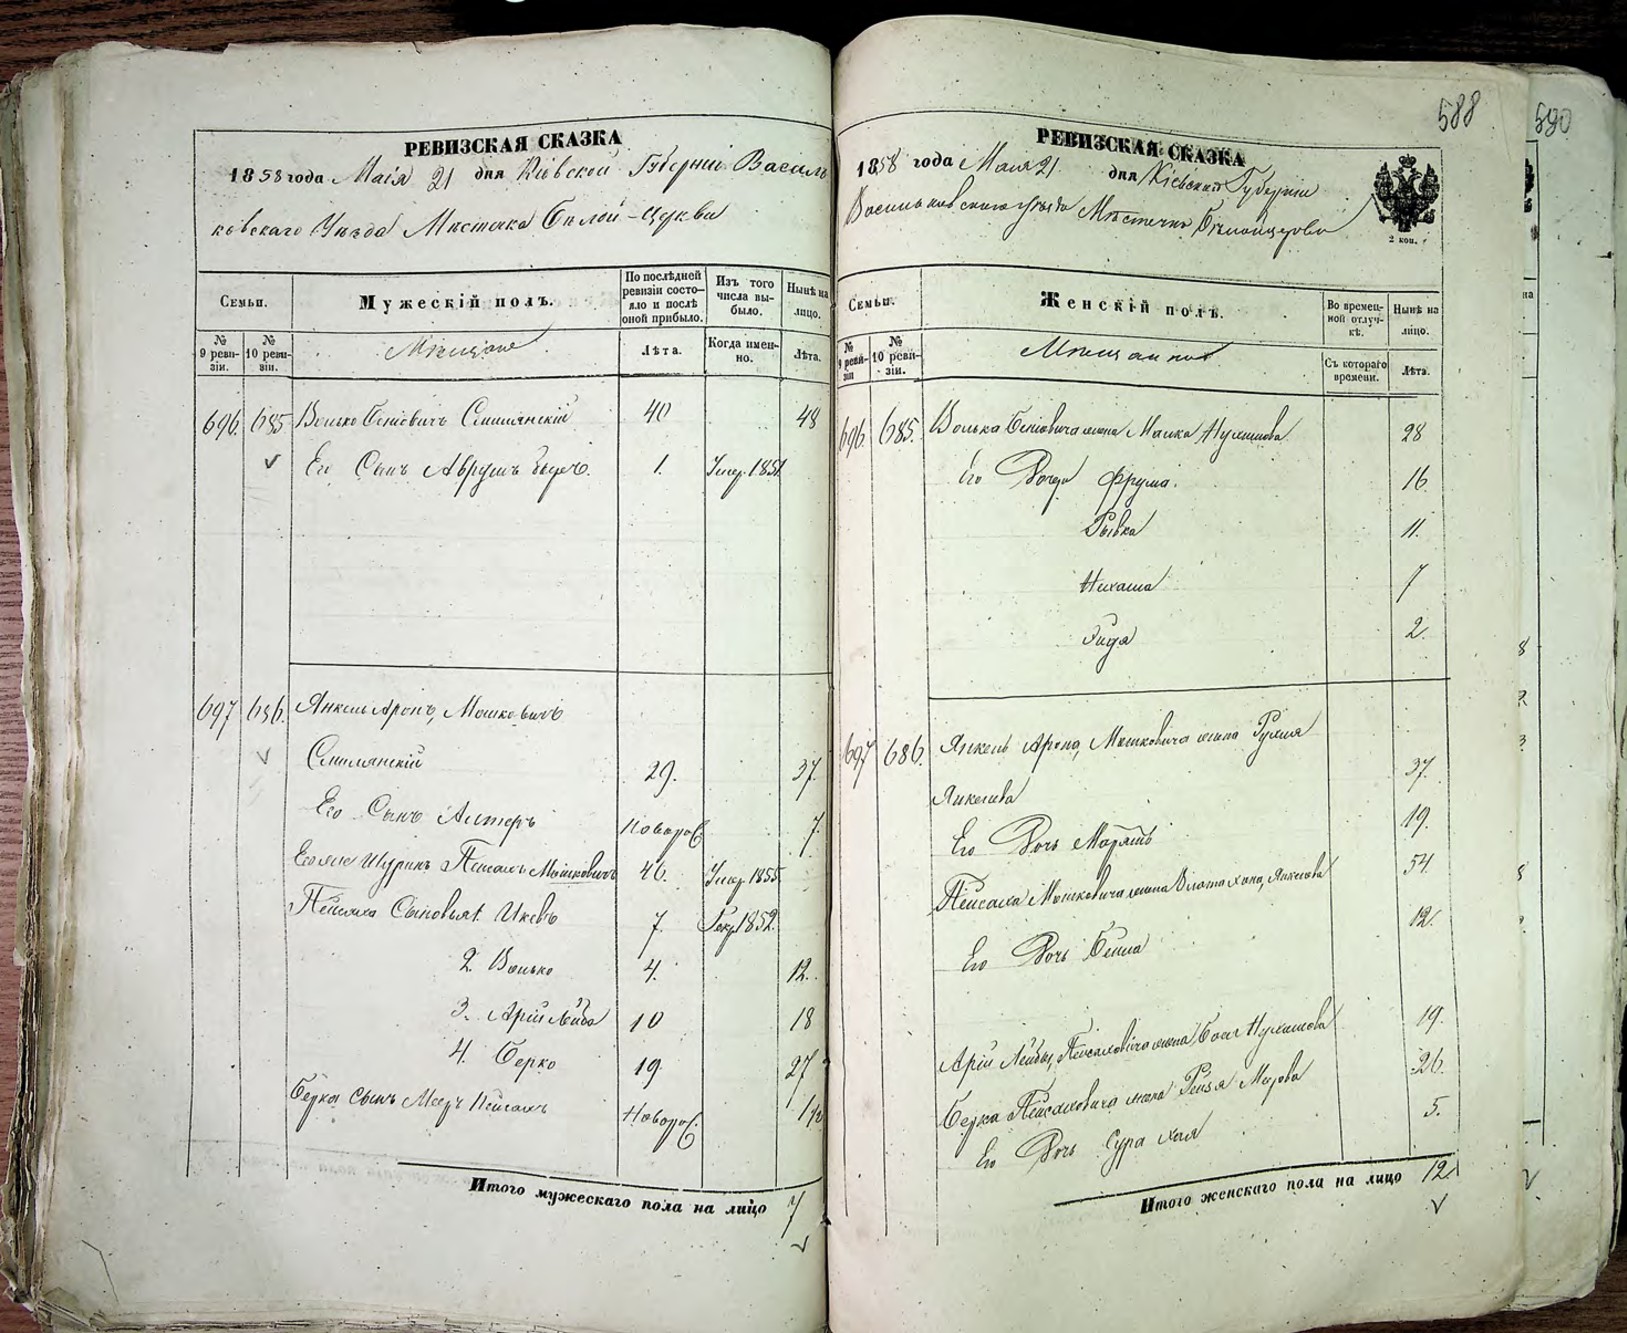 588
590
РЕВИЗСКАЯ СКАЗКА
1858 года Маія 21 дня Кіевской Губерніи Василь
ковскаго Уѣзда Мѣстечка Бѣлой-Церкви
Семьи.
Мужескій полъ.
По послѣдней ревизіи состояло и послѣ оной прибыло.
Изъ того числа выбыло.
Нынѣ на лицо.
№ 9 ревизіи.
№ 10 ревизіи.
Мѣщане
Лѣта.
Когда именно.
Лѣта.
696. 685 Волько Беніовичъ 40 48
Его Сынъ Аврумъ 1. Умер. 1851
697 686. Янкель Аронъ, Мошковичъ
29. 37.
Его Сынъ Алтеръ Новорož. 7.
Его же Шуринъ Пейсахъ Мошковичъ 46. Умер. 1855
Пейсаха Сыновья 1. Ицекъ 7. Рекр. 1852.
2. Волько 4. 12.
3. Арій Лейба 10 18
4. Берко 19 27
Берка Сынъ Мееръ Пейсахъ 1/2
Итого мужескаго пола на лицо 7
РЕВИЗСКАЯ СКАЗКА
1858 года Маія 21 дня Кіевской Губерніи
Васильковскаго Уѣзда Мѣстечка Бѣлойцеркви
2 коп.
Семьи.
Женскій полъ.
Во временной отлучкѣ.
Нынѣ на лицо.
№ 9 ревизіи
№ 10 ревизіи.
Мѣщанки
Съ котораго времени.
Лѣта.
696 685. Волька Беніовича жена Малка Нухимова 28
Его Дочери Фрума. 16
Рывка 11.
Нихама 7
2.
697 686. Янкель Арона, Мошковича жена Рухля
Янкелева 37.
Его Дочь Маріямъ 19.
Пейсаха Мошковича жена Злота Хана, Янкелева 54.
Его Дочь Бейла 12.
Арій Лейбы, Пейсаховича жена Нухимова 19.
Берка Пейсаховича жена Рейзя Меерова 26.
Его Дочь Сура Хая 5.
Итого женскаго пола на лицо 12.